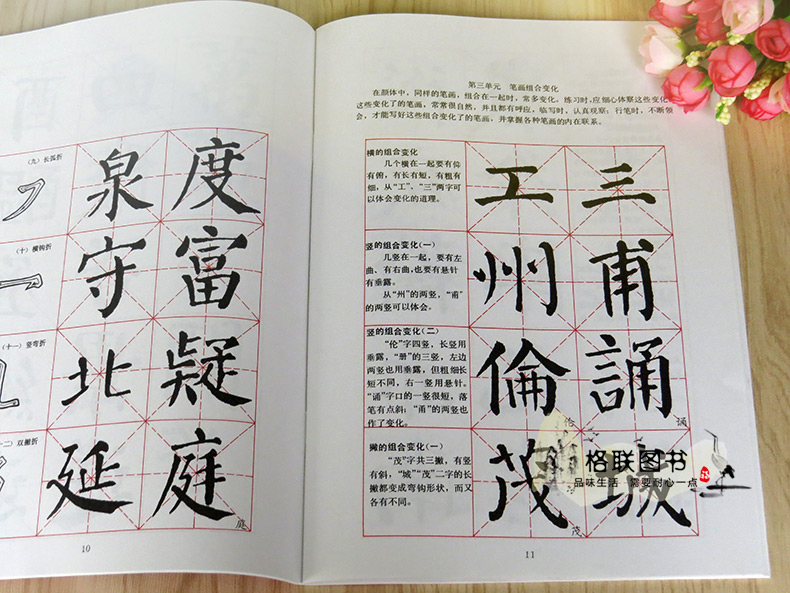 （九）长孤折
泉 度
（十）横钩折
守 富
（十一）竖弯折
北 疑
十二）双撇折
延 庭
庭
10
第三单元 笔画组合变化
在颜体中，同样的笔画，组合在一起时，常多变化。练习时，应细心体察这些变化，
这些变化了的笔画，常常很自然，并且都有呼应，临写时，认真观察；行笔时，不断领
会，才能写好这些组合变化了的笔画，并掌握各种笔画的内在联系。
横的组合变化
几个横在一起要有仰
有俯，有长有短，有粗有
细，从“工”、“三”两字可
以体会变化的道理。
工 三
竖的组合变化（一）
几竖在一起，要有左
曲、有右曲，也要有悬针
有垂露。
从“州”的两竖，“甫”
的两竖可以体会。
州 甫
竖的组合变化（二）
“伦”字四竖，长竖用
垂露，“册”的三竖，左边
两竖也用垂露，但粗细长
短不同，右一竖用悬针。
“诵”字口的一竖很短，落
笔有点斜；“甬”的两竖也
作了变化。
倫 誦
诵
撇的组合变化（一）
“茂”字共三撇，有竖
有斜，“城”“茂”二字的长
撇都变成弯钩形状，而又
各有不同。
茂 城
茂
格联图书
品味生活 需要耐心一点
11